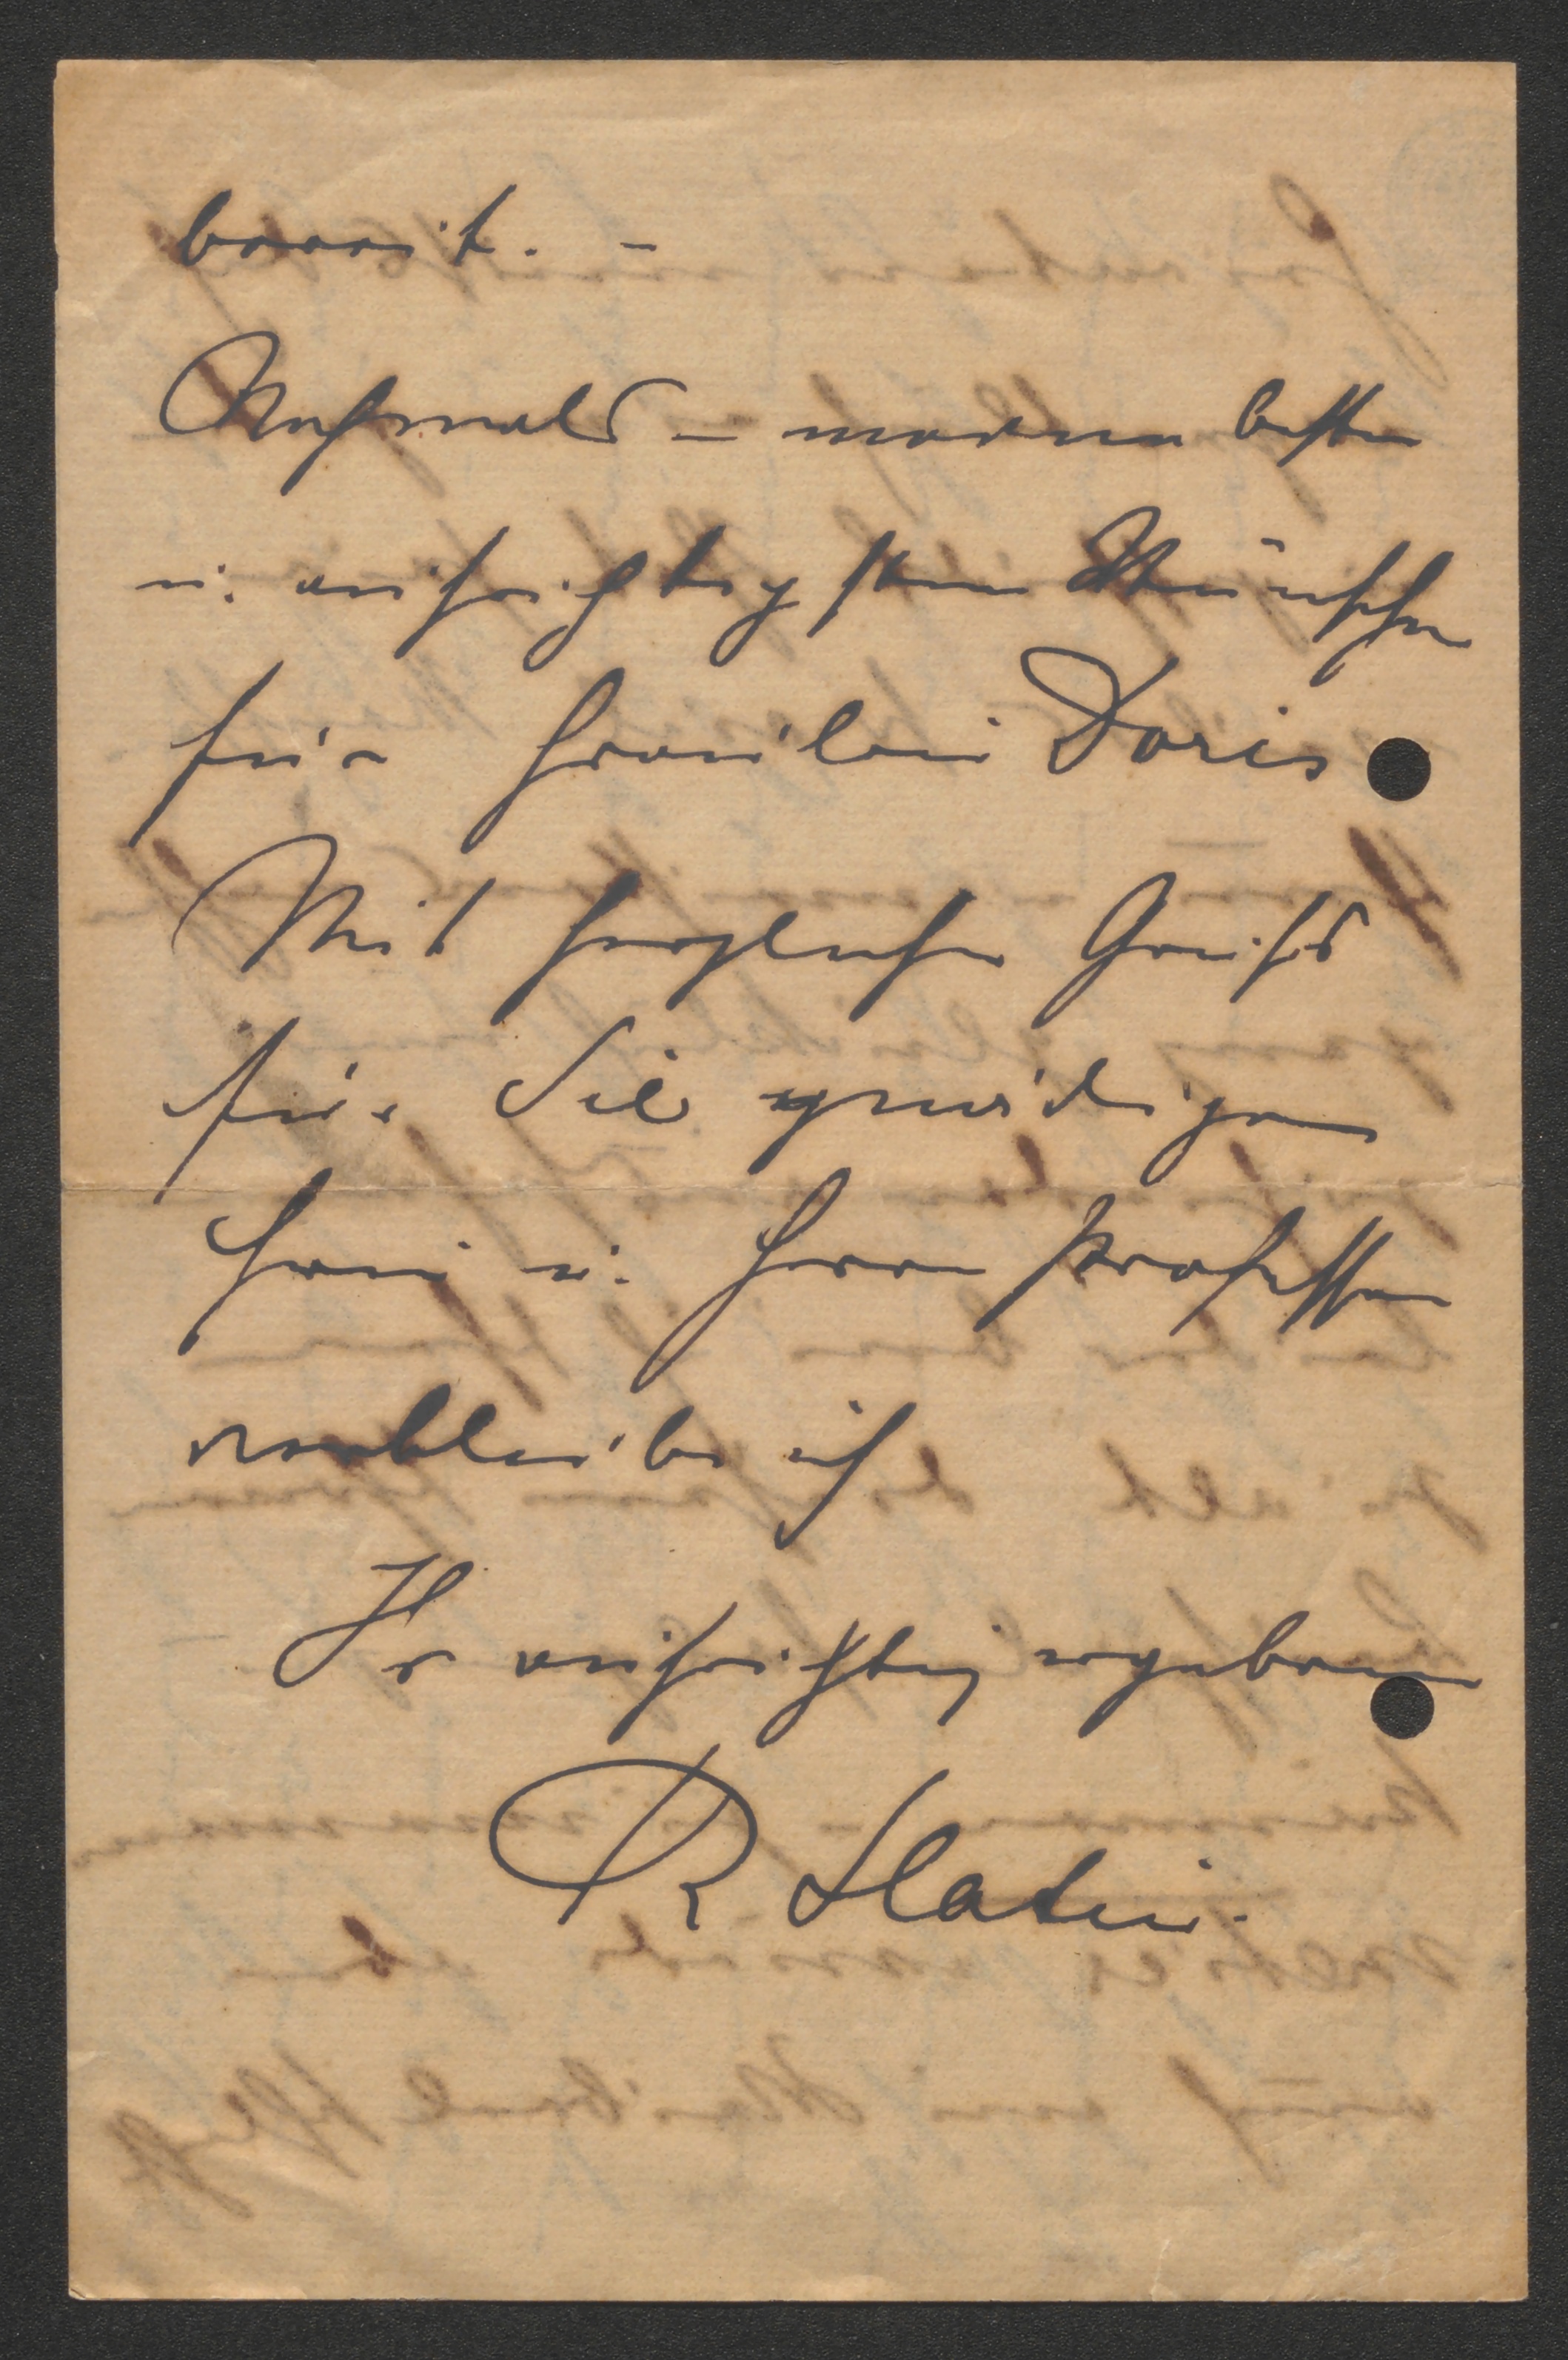 bereit. –
Nochmals – meine besten
u. aufrichtigsten Wünsche
für Fräulein Doris
Mit herzlichen Gruß
für Sie gnädige
Frau u. Herrn Professor
verbleibe ich
Ihr aufrichtig ergebener
R Slatin.